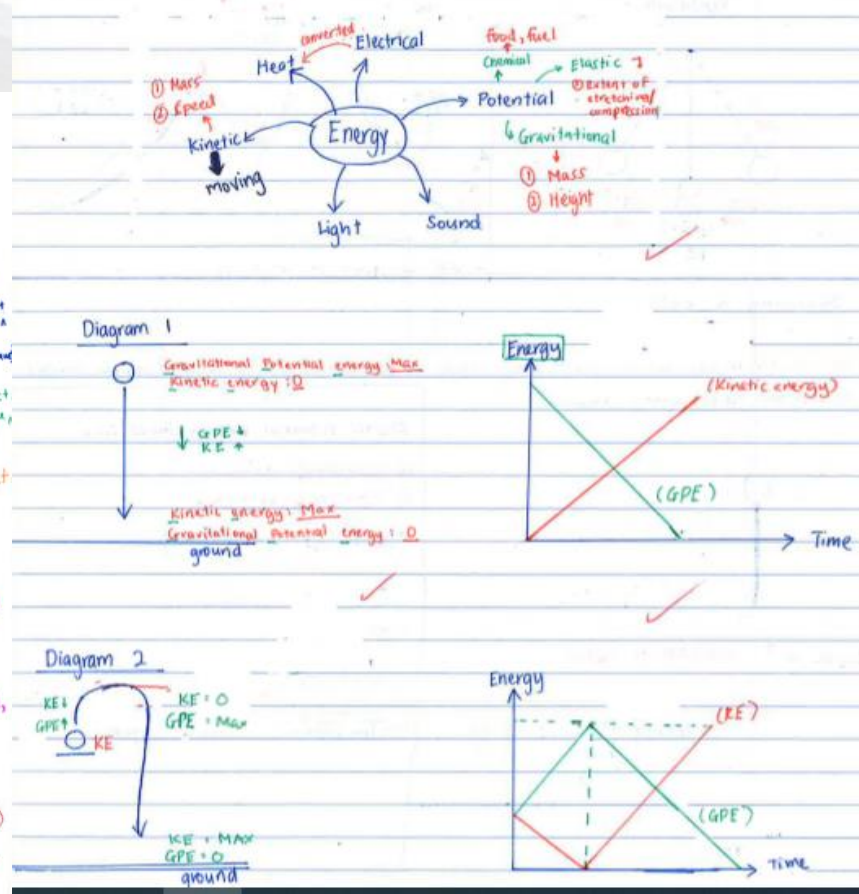 converted
Electrical
food, fuel
Heat
Chemical
Elastic
① Mass
② Speed
Potential
② Extent of
stretching/
compression
Kinetic
Energy
Gravitational
moving
① Mass
② Height
Light
Sound
Diagram 1
Gravitational Potential energy: Max
Kinetic energy: 0
GPE ↓
KE ↑
Kinetic energy: Max
Gravitational Potential energy: 0
ground
Energy
(Kinetic energy)
(GPE)
Time
Diagram 2
KE↓
GPE↑
KE
KE = 0
GPE = Max
KE = MAX
GPE = 0
ground
Energy
(KE)
(GPE)
Time